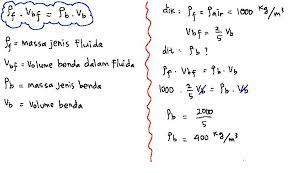 ρf . Vbf = ρb . Vb
ρf = massa jenis fluida
Vbf = Volume benda dalam fluida
ρb = massa jenis benda
Vb = Volume benda
dik: ρf = ρair = 1000 kg/m³
Vbf = 2/5 Vb
dit: ρb ?
ρf . Vbf = ρb . Vb
1000 . 2/5 Vb = ρb . Vb
ρb = 2000/5
ρb = 400 kg/m³